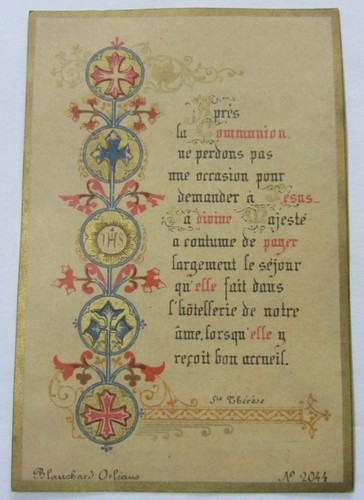 Après
la Communion,
ne perdons pas
une occasion pour
demander à Jésus.
Sa divine Majesté
a coutume de payer
largement le séjour
qu'elle fait dans
l'hôtellerie de notre
âme, lorsqu'elle y
reçoit bon accueil.
Ste Thérèse
IHS
Blanchard Orléans
No 2044